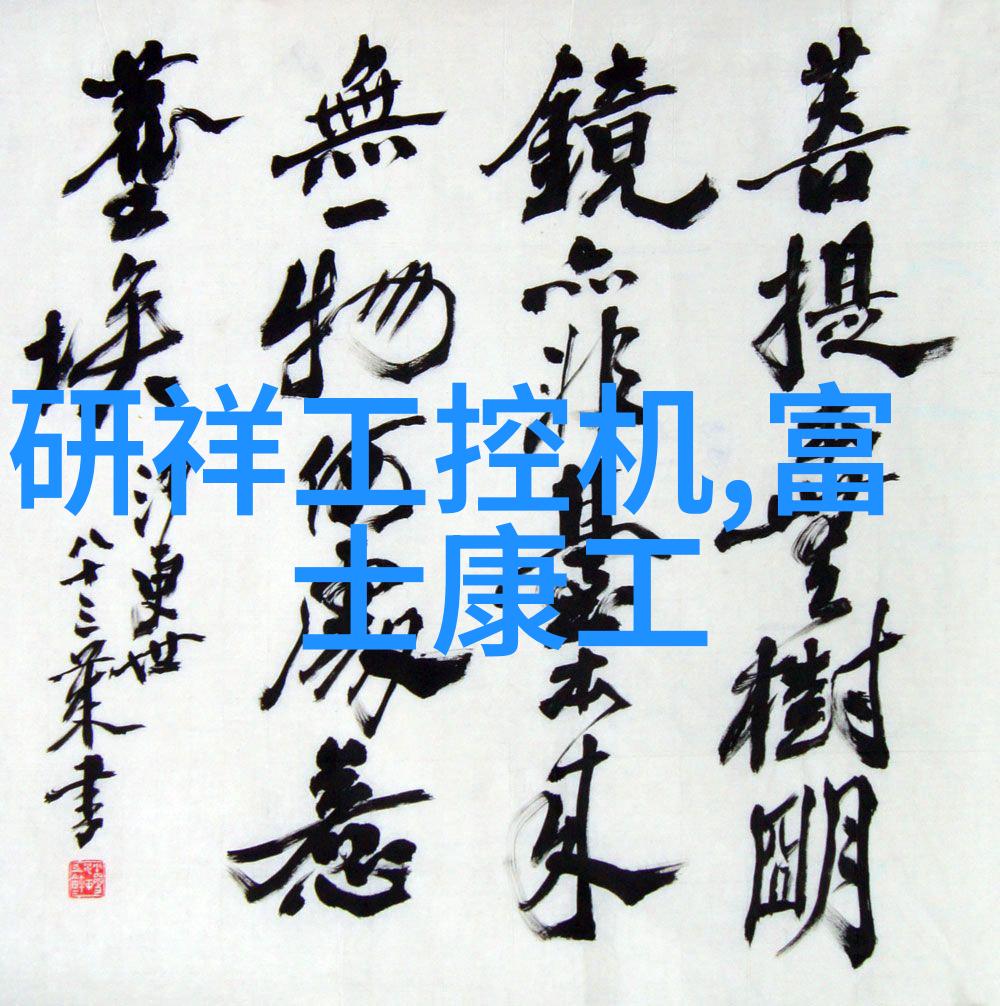 菩提無樹明
鏡亦非臺本來
無一物何處惹
塵埃
沙更世
八十三書
研祥工控机,富
士康工